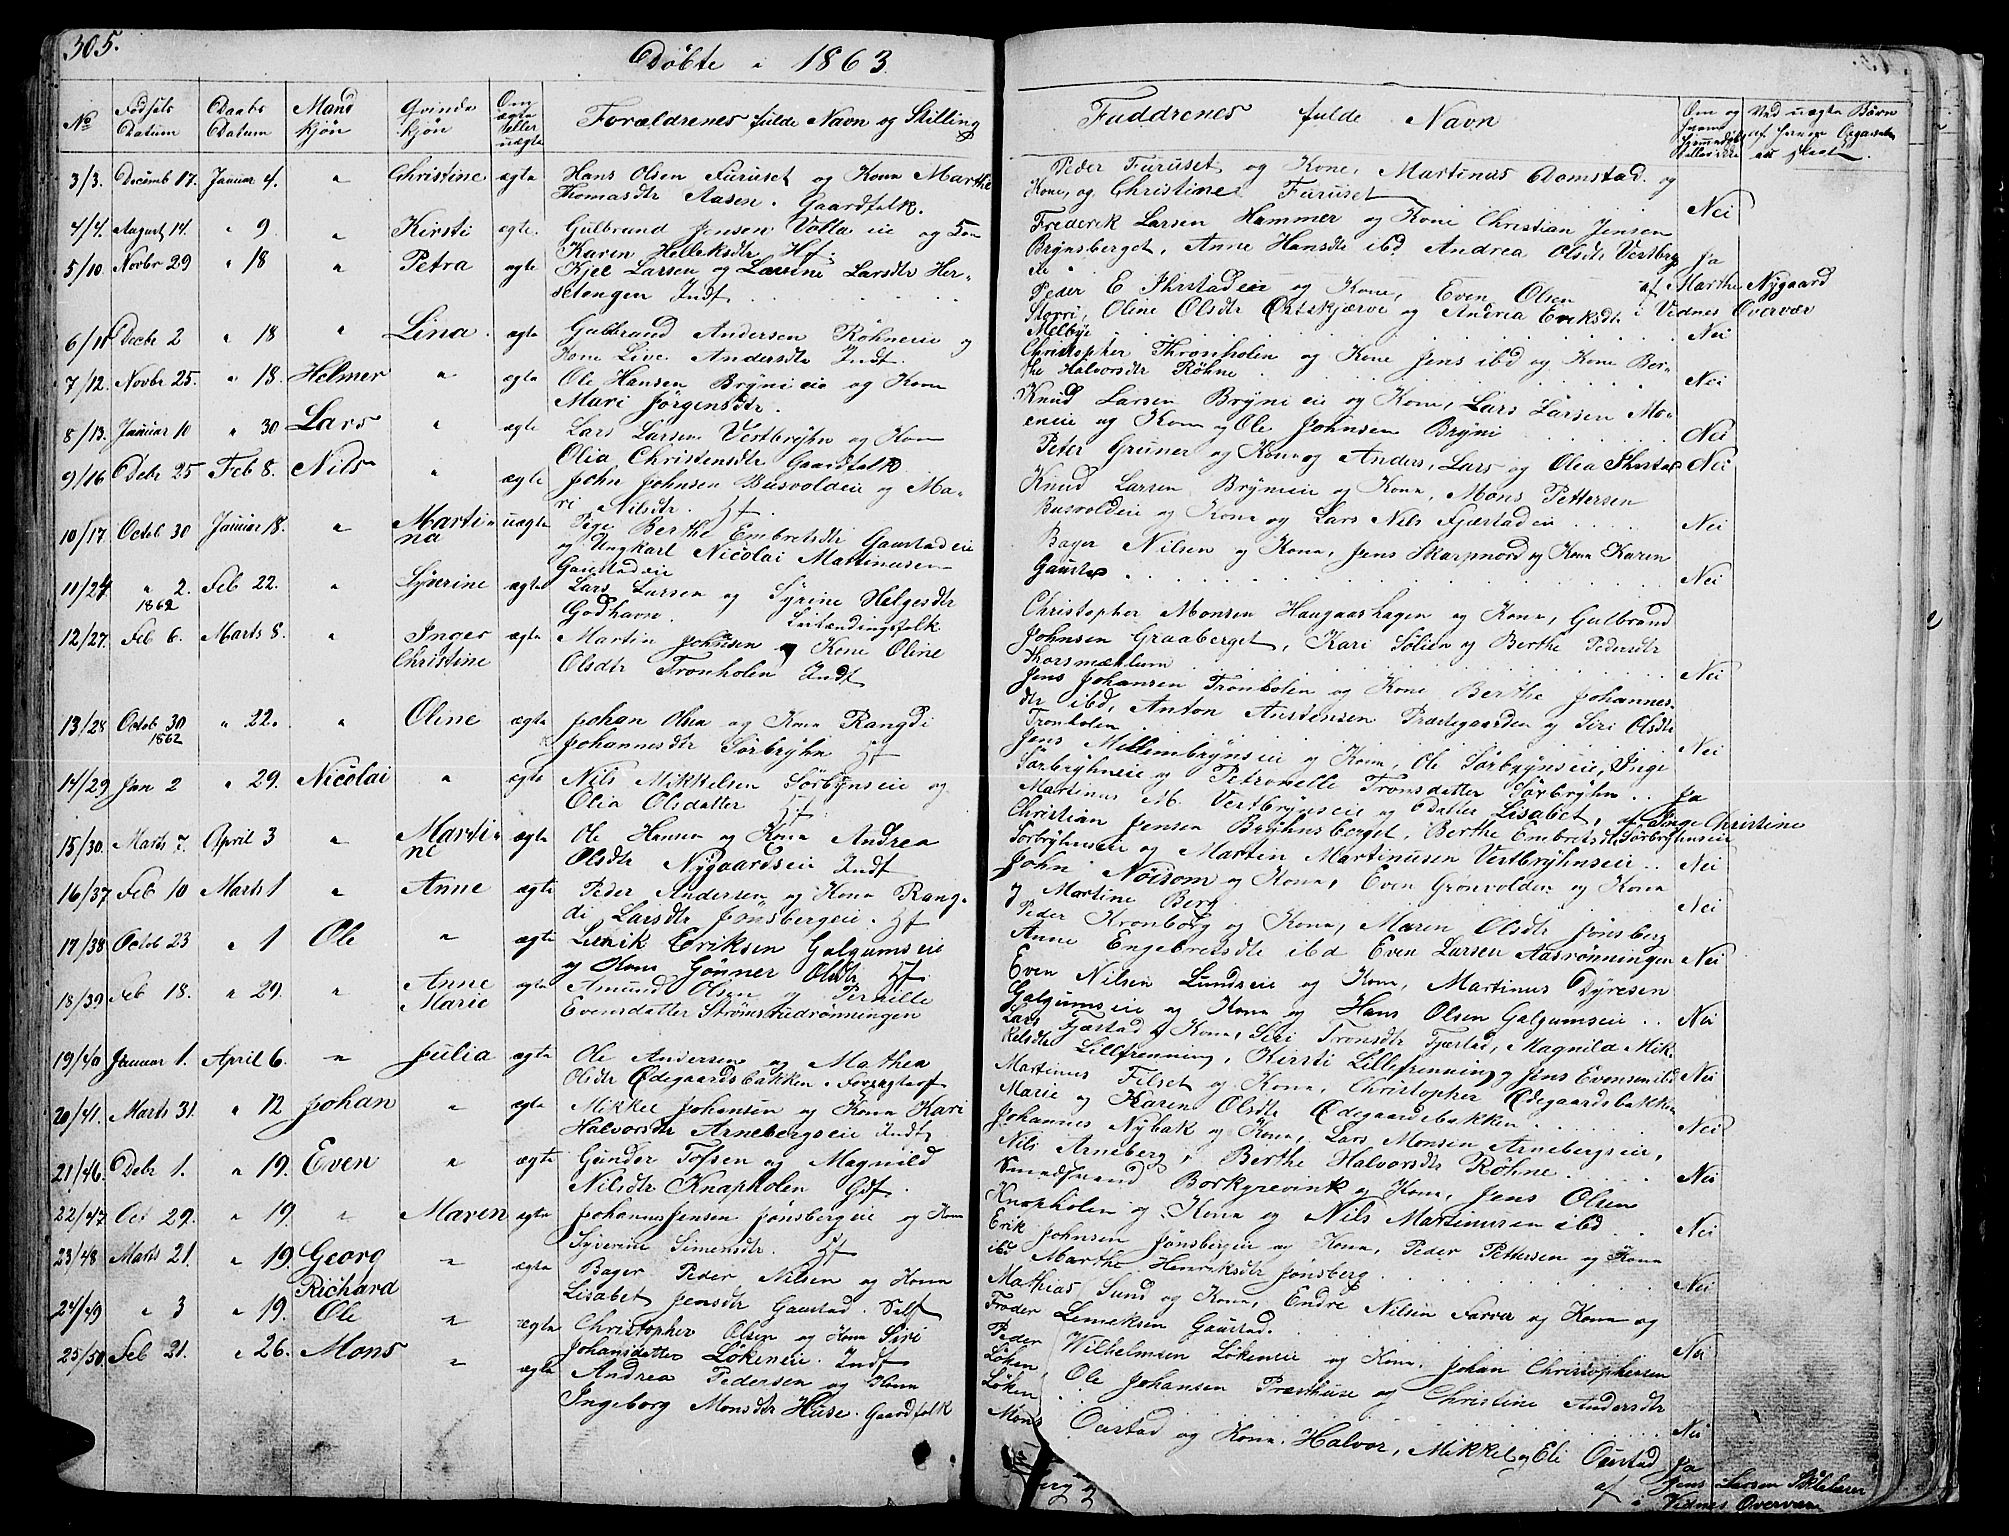 305.
Döbte i 1863.
No
Födsels Datum
Daabs Datum
Mand kjön
Qvinde kjön
Om ægte eller uægte
Forældrenes fulde Navn og Stilling
Faddrenes fulde Navn
Om og hvem hjemmedöbt
Ved uægte Börn af hvem Opgavelse er skeet
3/3. Decemb 17. Januar 4. " Christine ægte Hans Olsen Furuset og Kone Marthe
Thomasdtr Aasen. Gaardfolk.
Peder Furuset og Kone, Martinus Domstad og
Kone, og Christine Furuset Nei
4/4. August 14. " 9. " Kirsti ægte. Gulbrand Jensen Volla eie og
Karen Helleksdtr Hf.
Frederik Larsen Hammer og Kone Christian Jensen
Brynsberget, Anne Hansdtr ibd Andrea Olsdtr Vestbry Ja
5/10. Novbr 29 " 18 " Petra ægte Kjel Larsen og Lavrine Larsdtr Her-
setengen Indf
af Marthe Nygaard
Peder E Thrstadeie og Kone, Even Olsen
i Vidnes Overvær
Storri, Oline Olsdtr Ortskjærve og Andrea Eriksdtr
Melbye Nei
6/11 Decbr 2 " 18 " Lina. ægte Gulbrand Andersen Röhneeie og
Kone Live Andersdtr Indf.
Christopher Thronholen og Kone Jens ibd og Kone Ber-
the Halvorsdtr Röhne Nei
7/12. Novbr 25. " 18. Helmer " ægte Ole Hansen Brynieie og Kone
Mari Jörgensdtr.
Knud Larsen Bryni eie og Kone, Lars Larsen Mo-
eneie og Kone og Ole Johnsen Bryni Nei
8/13. Januar 10 " 30 Lars " ægte Lars Larsen Vestbryhn og Kone
Olia Christensdtr Gaardfolk
Peter Gruner og Kone og Anders, Lars og Olea Thrstad Nei
9/16 Debr 25 Feb 8. Nils " ægte John Johnsen Busvoldeie og Ma-
ri Nilsdtr. Hf.
Knud Larsen Brynieie og Kone, Mons Pettersen
Busvoldeie og Kone og Lars Nils Fjæstadeie Nei
10/17. Octob 30 Januar 18. " Marti-
na uægte Pige Berthe Embretsdtr Gaustadeie
og Ungkarl Nicolai Martinusen
Gaustadeie
Bager Nilsen og Kone, Jens Skarpnord og Kone Karen
Gaustad Nei
11/24 " 2. 1862 Feb 22. " Syverine ægte Lars Larsen og Syrine Helgesdtr
Godhavn. Indændingsfolk
Christopher Monsen Haugaashagen og Kone, Gulbrand
Johnsen Graaberget, Kari Sölien og Berthe Pedersdtr
Thorsmæhlum Nei
12/27. Feb 6. Marts 8. " Inger
Christine ægte Martin Johnsen og Kone Oline
Olsdtr Tronholen Indf
Jens Johansen Tronholen og Kone Berthe Johannes-
dtr ibd, Anton Anstensen Præstegaarden og Siri Olsdtr
Tronholen Nei
13/28 Octob 30 1862 " 22. " Oline ægte Johan Olsen og Kone Rangdi
Johannesdtr Sörbryhn Hf
Jens Mellembrynseie og Kone, Ole Sörbrynseie, Inge
Sörbryhneie og Petronelle Tronsdatter Sörbryhn Ja
14/29 Jan 2 " 29. Nicolai " ægte Nils Mikkelsen Sörbynseie og
Olia Olsdatter Hf.
Martinus M. Vestbrynseie og Datter Lisabet, af Inge Christine
Christian Jensen Bryhnsberget, Berthe Embretsdtr Sörbryhnseie
Sörbryhnseie og Martin Martinusen Vestbryhnseie Nei
15/30. Marts 7. April 3 " Marti-
ne ægte Ole Hansen og Kone Andrea
Olsdtr Nygaardseie Indf
John Nöisom og Kone, Even Grönvolden og Kone
og Martine Berg Nei
16/37 Feb 10 Marts 1 " Anne ægte Peder Andersen og Kone Rang-
di Larsdtr Jönsbergeie. Hf
Peder Kronborg og Kone, Maren Olsdtr Jönsberg
Anne Engebretsdtr ibd Even Larsen Aasrönningen Nei
17/38 Octob 23 " 1 Ole " ægte Lerik Eriksen Galgumseie
og Kone Gönner Olsdtr Hf.
Even Nilsen Lundseie og Kone, Martinus Dyresen
Galgumseie og Kone og Hans Olsen Galgumseie Nei
18/39 Feb 18. " 29. " Anne
Marie ægte Amund Olsen og Pernille
Evensdatter Strömstudrönningen
Lars Fjæstad og Kone, Siri Tronsdtr Fjæstad, Magnild Mik-
kelsdtr Lillefrenning, Kirsti Lillefrenning og Jens Evensen ibd Nei
19/40 Januar 1. April 6. " Julia ægte Ole Andersen og Mathea
Olsdtr Ödegaardsbakken. Forpagterf
Martinus Filset og Kone, Christopher Ödegaardsbakken
Marie og Karen Olsdtr Ödegaardsbakken Nei
20/41. Marts 31. " 12 Johan " ægte Mikkel Johansen og Kone Kari
Halvorsdtr Arnebergseie Indf
Johannes Nybak og Kone, Lars Monsen Arnebergseie,
Nils Arneberg, Berthe Halvorsdtr Röhne Nei
21/46. Debr 1. " 19. Even " ægte Gunder Tofsen og Magnild
Nilsdtr Knapholen Gdf.
Smedsvend Borkgrevink og Kone, Jens Olsen
Knapholen og Kone og Nils Martinusen ibd Nei
22/47 Oct 29. " 19. " Maren ægte Johannes Jensen Jönsbergeie og Kone
Syverine Simensdtr. Hf
Erik Johnsen Jönsbergeie og Kone, Peder Pettersen og Kone
ibd Marthe Henriksdtr Jönsberg Nei
23/48 Marts 21. " 19 Georg
Richard " ægte Bager Peder Nilsen og Kone
Lisabet Jensdtr Gaustad. Self
Mathias Sund og Kone, Endre Nilsen Farver og Kone og
Fröder Lemeksen Gaustad. Nei
24/49 " 3 " 19. Ole " ægte Christopher Olsen og Kone Siri
Johansdatter Lökeneie. Indf
Peder Wilhelmsen Lökenseie og Kone, Johan Christophersen
Löken Ole Johansen Præsthuse og Christine Andersdtr
Löken Nei
25/50 Feb 21. " 26. Mons " ægte Andrea Pedersen og Kone
Ingeborg Monsdtr Huse. Gaardfolk
Mons Oustad og Kone. Halvor, Mikkel og Eli Oustad Ja
af Jens Larsen
i Vidnes Overvær